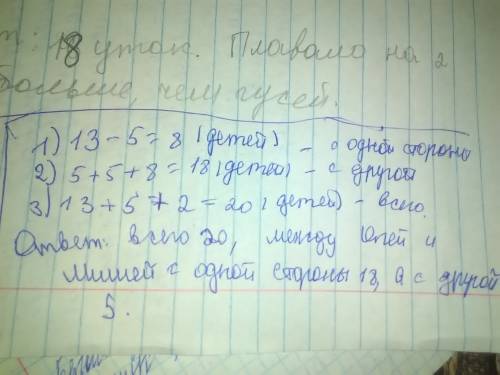 18 уток. Плавало на 2
больше, чем гусей.
1) 13 - 5 = 8 (детей) - с одной стороны
2) 5 + 5 + 8 = 18 (детей) - с другой
3) 13 + 5 + 2 = 20 (детей) - всего.
Ответ: всего 20, между Юлей и
Мишей с одной стороны 13, а с другой
5.